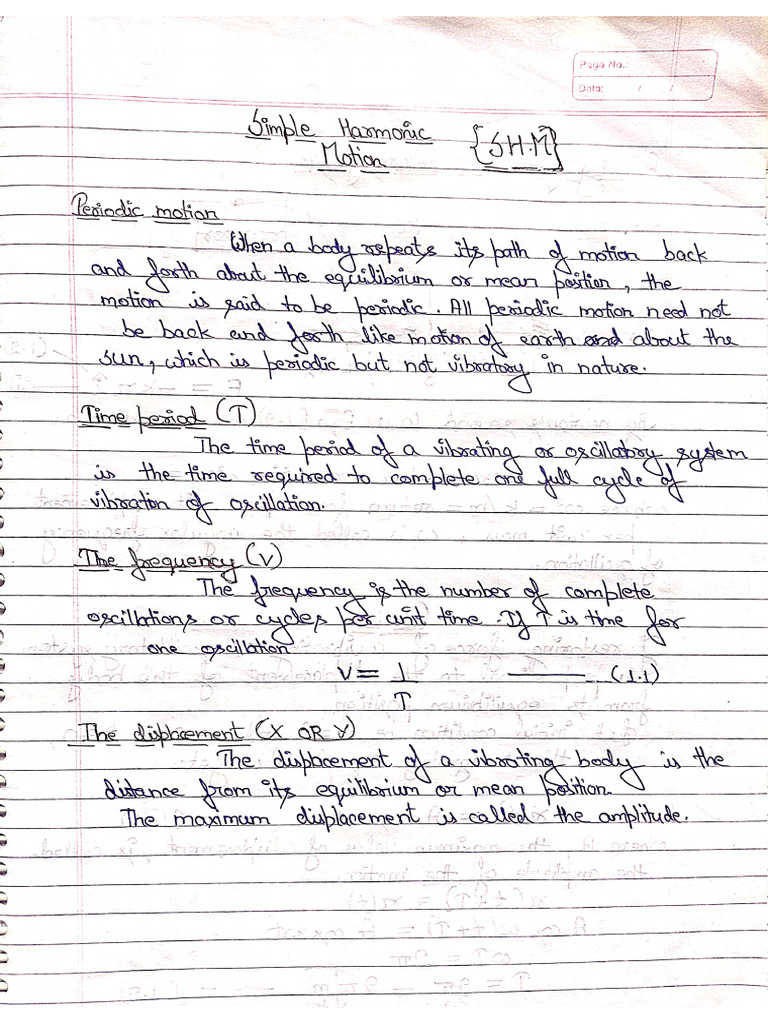 Page No.:
Date: / /
Simple Harmonic {S.H.M}
Motion
Periodic motion
When a body repeats its path of motion back
and forth about the equilibrium or mean position, the
motion is said to be periodic. All periodic motion need not
be back and forth like motion of earth about the
sun, which is periodic but not vibratory in nature.
Time period (T)
The time period of a vibrating or oscillatory system
is the time required to complete one full cycle of
vibration of oscillation.
The frequency (V)
The frequency is the number of complete
oscillations or cycles per unit time. If T is time for
one oscillation
V = 1/T ——— (1.1)
The displacement (X OR Y)
The displacement of a vibrating body is the
distance from its equilibrium or mean position.
The maximum displacement is called the amplitude.